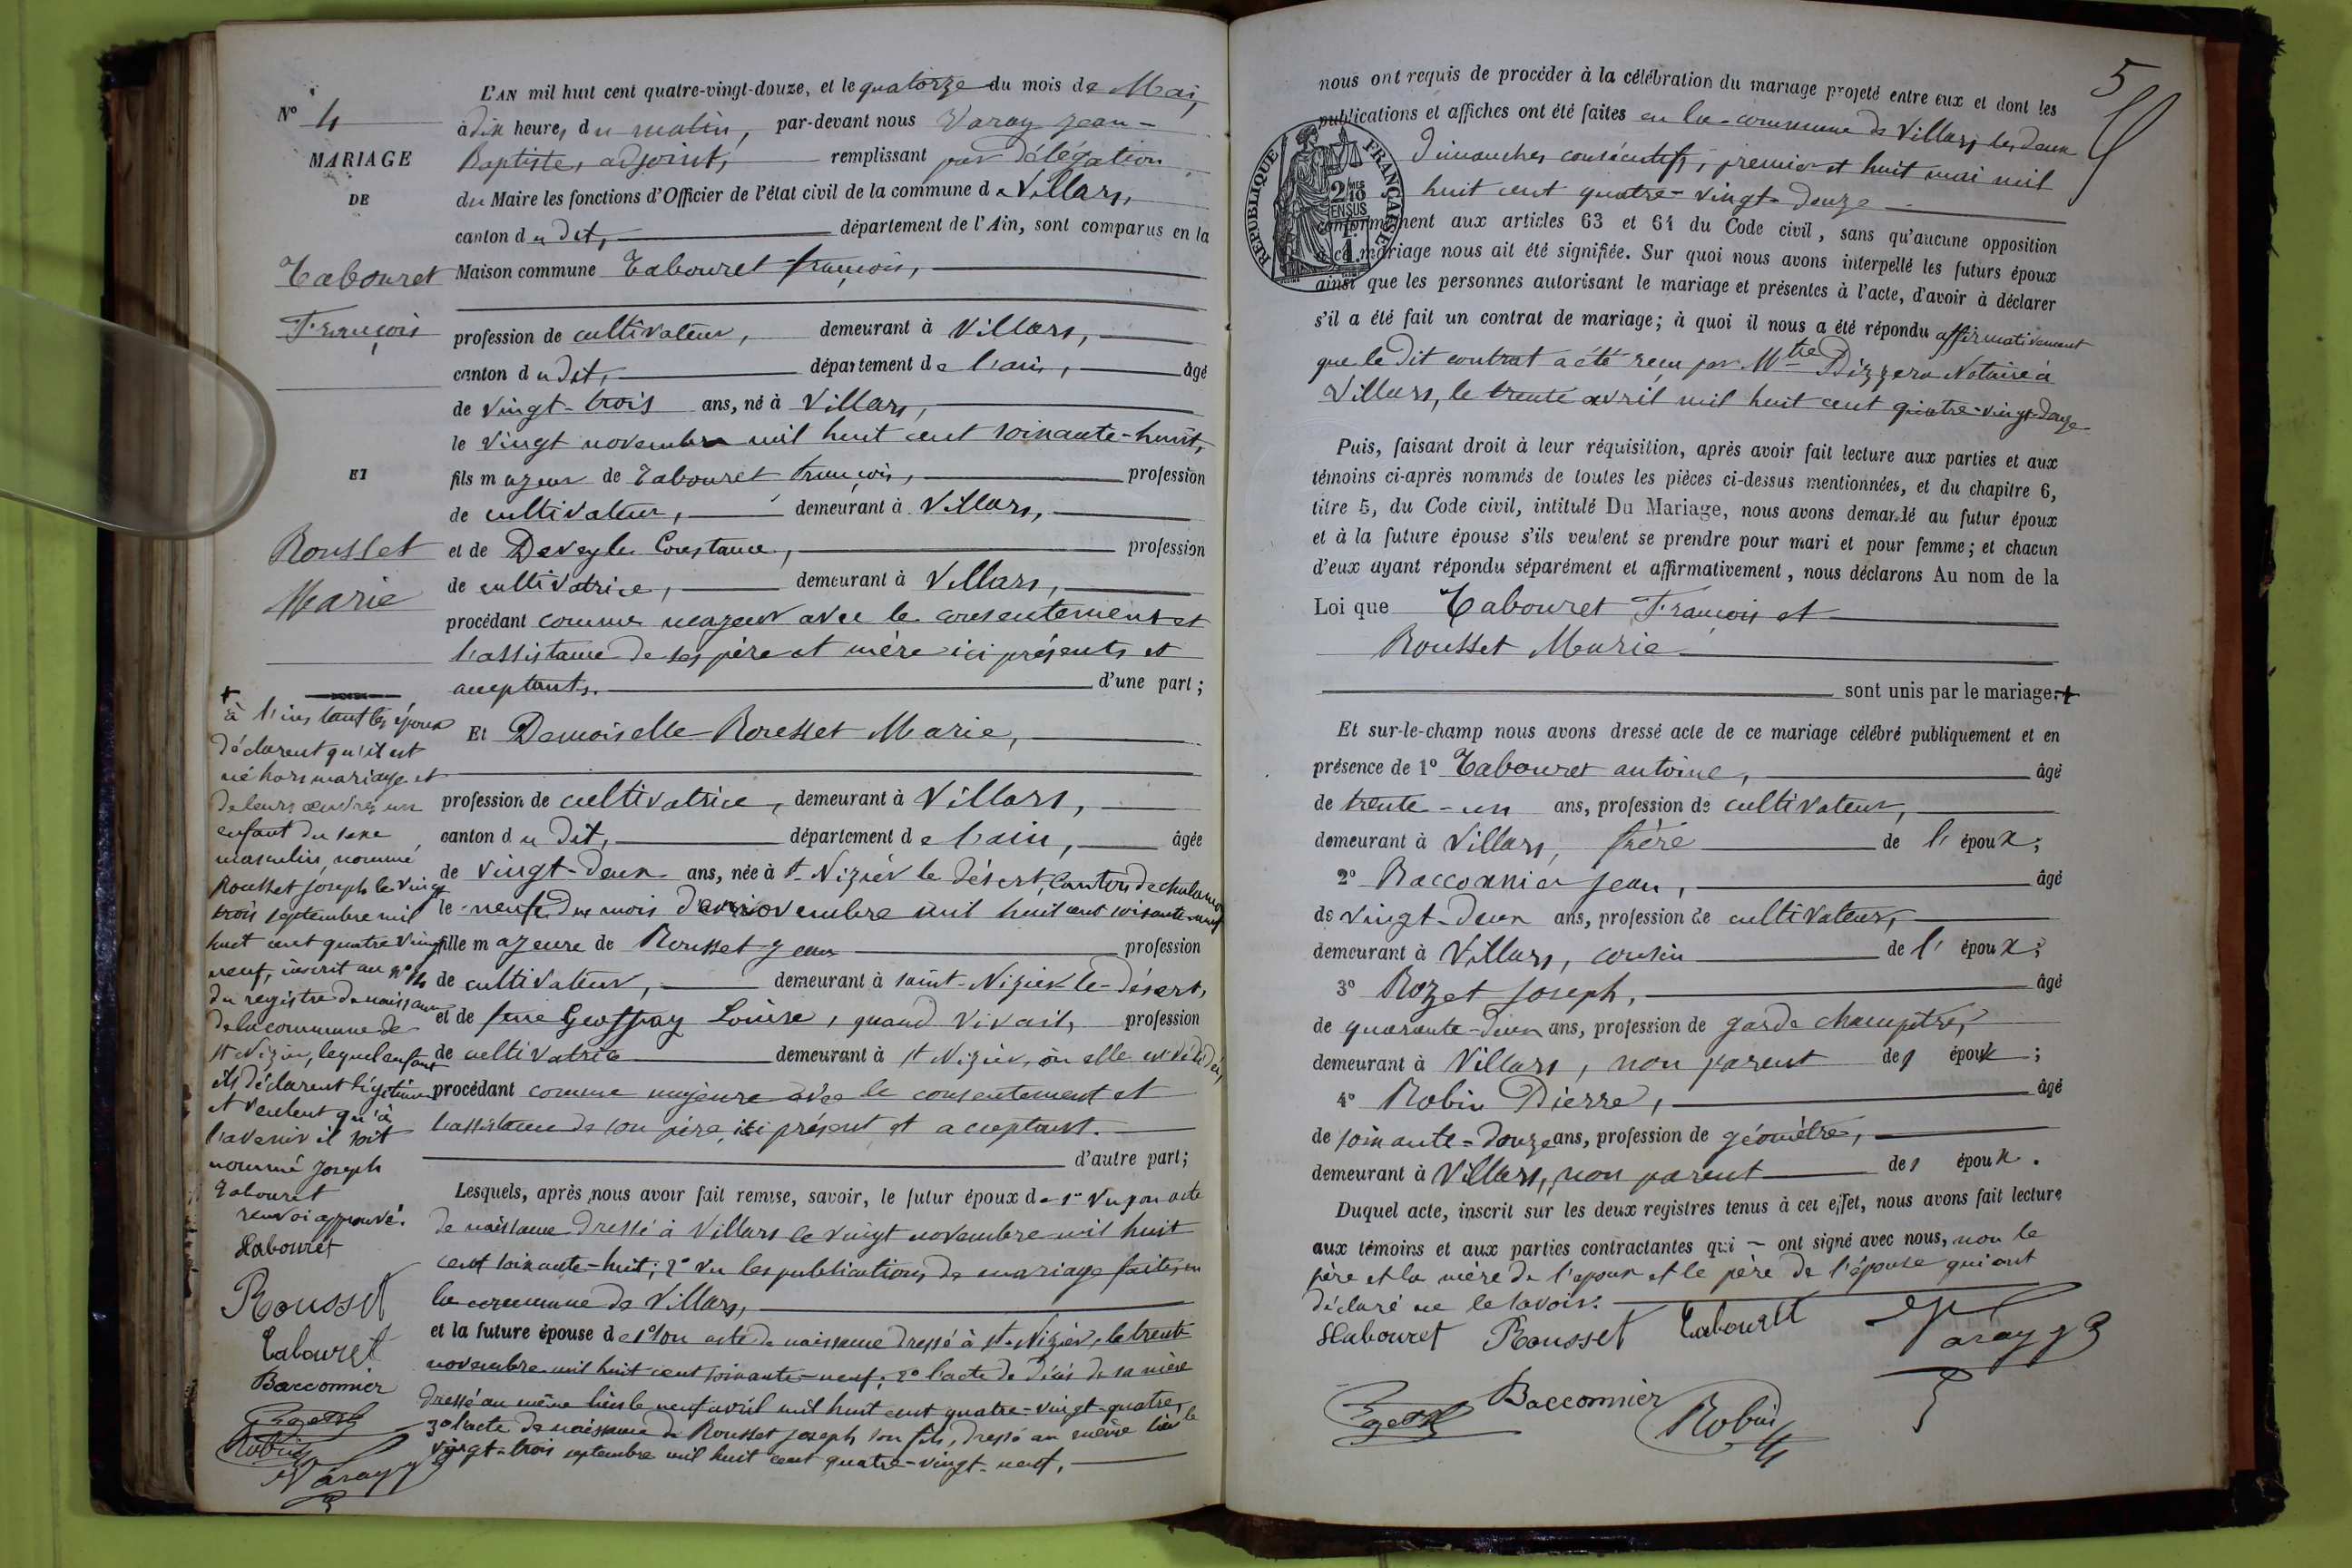 L'AN mil huit cent quatre-vingt-douze, et le quatorze du mois de Mai,
à dix heures du matin, par-devant nous Varay Jean-
Baptiste, adjoint, remplissant par délégation
du Maire les fonctions d'Officier de l'état civil de la commune de Villars,
canton du dit, département de l'Ain, sont comparus en la
Maison commune Tabouret françois,
profession de cultivateur, demeurant à Villars,
canton du dit, département de l'ain, âgé
de vingt-trois ans, né à Villars,
le vingt novembre mil huit cent soixante-huit,
fils majeur de Tabouret françois, profession
de cultivateur, demeurant à Villars,
et de Deveyle Constance, profession
de cultivatrice, demeurant à Villars,
procédant comme majeur avec le consentement et
l'assistance de ses père et mère ici présents et
acceptants. d'une part;
Et Demoiselle Rousset Marie,
profession de cultivatrice, demeurant à Villars,
canton du dit, département de l'ain, âgée
de vingt-deux ans, née à St Nizier le désert, Canton de
le neuf du mois novembre mil huit cent soixante-neuf
fille majeure de Rousset Jean profession
de cultivateur, demeurant à saint-Nizier-le-désert,
et de feue Geoffray Louise, quand vivait, profession
de cultivatrice demeurant à St Nizier, où elle est décédée,
procédant comme majeure avec le consentement et
l'assistance de son père, ici présent et acceptant.
d'autre part;
Lesquels, après nous avoir fait remise, savoir, le futur époux de 1° Vu son acte
de naissance dressé à Villars le vingt novembre mil huit
cent soixante-huit; 2° vu les publications de mariage faites en
la commune de Villars,
et la future épouse de 1° son acte de naissance dressé à St-Nizier, le trente
novembre mil huit cent soixante-neuf; 2° l'acte de décès de sa mère
dressé au même lieu le neuf avril mil huit cent quatre-vingt-quatre,
3° l'acte de naissance de Rousset Joseph son fils, dressé au même lieu le
vingt-trois septembre mil huit cent quatre-vingt-neuf.
N° 4
MARIAGE
DE
Tabouret
François
ET
Rousset
Marie
+
à l'instant les époux
déclarent qu'il est
né hors mariage et
de leurs œuvres un
enfant du sexe
masculin, nommé
Rousset Joseph le vingt
trois septembre mil
huit cent quatre vingt
neuf, inscrit au n°
du registre de naissance
de la commune de
St Nizier, lequel enfant
ils déclarent légitimer
et veulent qu'à
l'avenir il soit
nommé Joseph
Tabouret
renvoi approuvé.
Tabouret
Rousset
Tabouret
Bacconnier
Rozet
Robin
Varay
5
nous ont requis de procéder à la célébration du mariage projeté entre eux et dont les
publications et affiches ont été faites en la commune de Villars les deux
dimanches consécutifs, premier et huit mai mil
huit cent quatre-vingt-douze
conformément aux articles 63 et 64 du Code civil, sans qu'aucune opposition
à ce mariage nous ait été signifiée. Sur quoi nous avons interpellé les futurs époux
ainsi que les personnes autorisant le mariage et présentes à l'acte, d'avoir à déclarer
s'il a été fait un contrat de mariage; à quoi il nous a été répondu affirmativement
que le dit contrat a été reçu par Mtre Notaire à
Villars, le trente avril mil huit cent quatre-vingt-douze
REPUBLIQUE FRANÇAISE
2/10MES
EN SUS
1F.
Puis, faisant droit à leur réquisition, après avoir fait lecture aux parties et aux
témoins ci-après nommés de toutes les pièces ci-dessus mentionnées, et du chapitre 6,
titre 5, du Code civil, intitulé Du Mariage, nous avons demandé au futur époux
et à la future épouse s'ils veulent se prendre pour mari et pour femme; et chacun
d'eux ayant répondu séparément et affirmativement, nous déclarons Au nom de la
Loi que Tabouret François et
Rousset Marie
sont unis par le mariage.+
Et sur-le-champ nous avons dressé acte de ce mariage célébré publiquement et en
présence de 1° Tabouret antoine, âgé
de trente-un ans, profession de cultivateur,
demeurant à Villars, frère de l'époux;
2° Bacconnier Jean, âgé
de vingt-deux ans, profession de cultivateur,
demeurant à Villars, cousin de l'époux;
3° Rozet Joseph, âgé
de quarante-deux ans, profession de garde champêtre,
demeurant à Villars, non parent des époux;
4° Robin Pierre, âgé
de soixante-douze ans, profession de géomètre,
demeurant à Villars, non parent des époux.
Duquel acte, inscrit sur les deux registres tenus à cet effet, nous avons fait lecture
aux témoins et aux parties contractantes qui - ont signé avec nous, non le
père et la mère de l'époux et le père de l'épouse qui ont
déclaré ne le savoir.
Tabouret Rousset Tabouret Varay
Rozet Bacconnier Robin